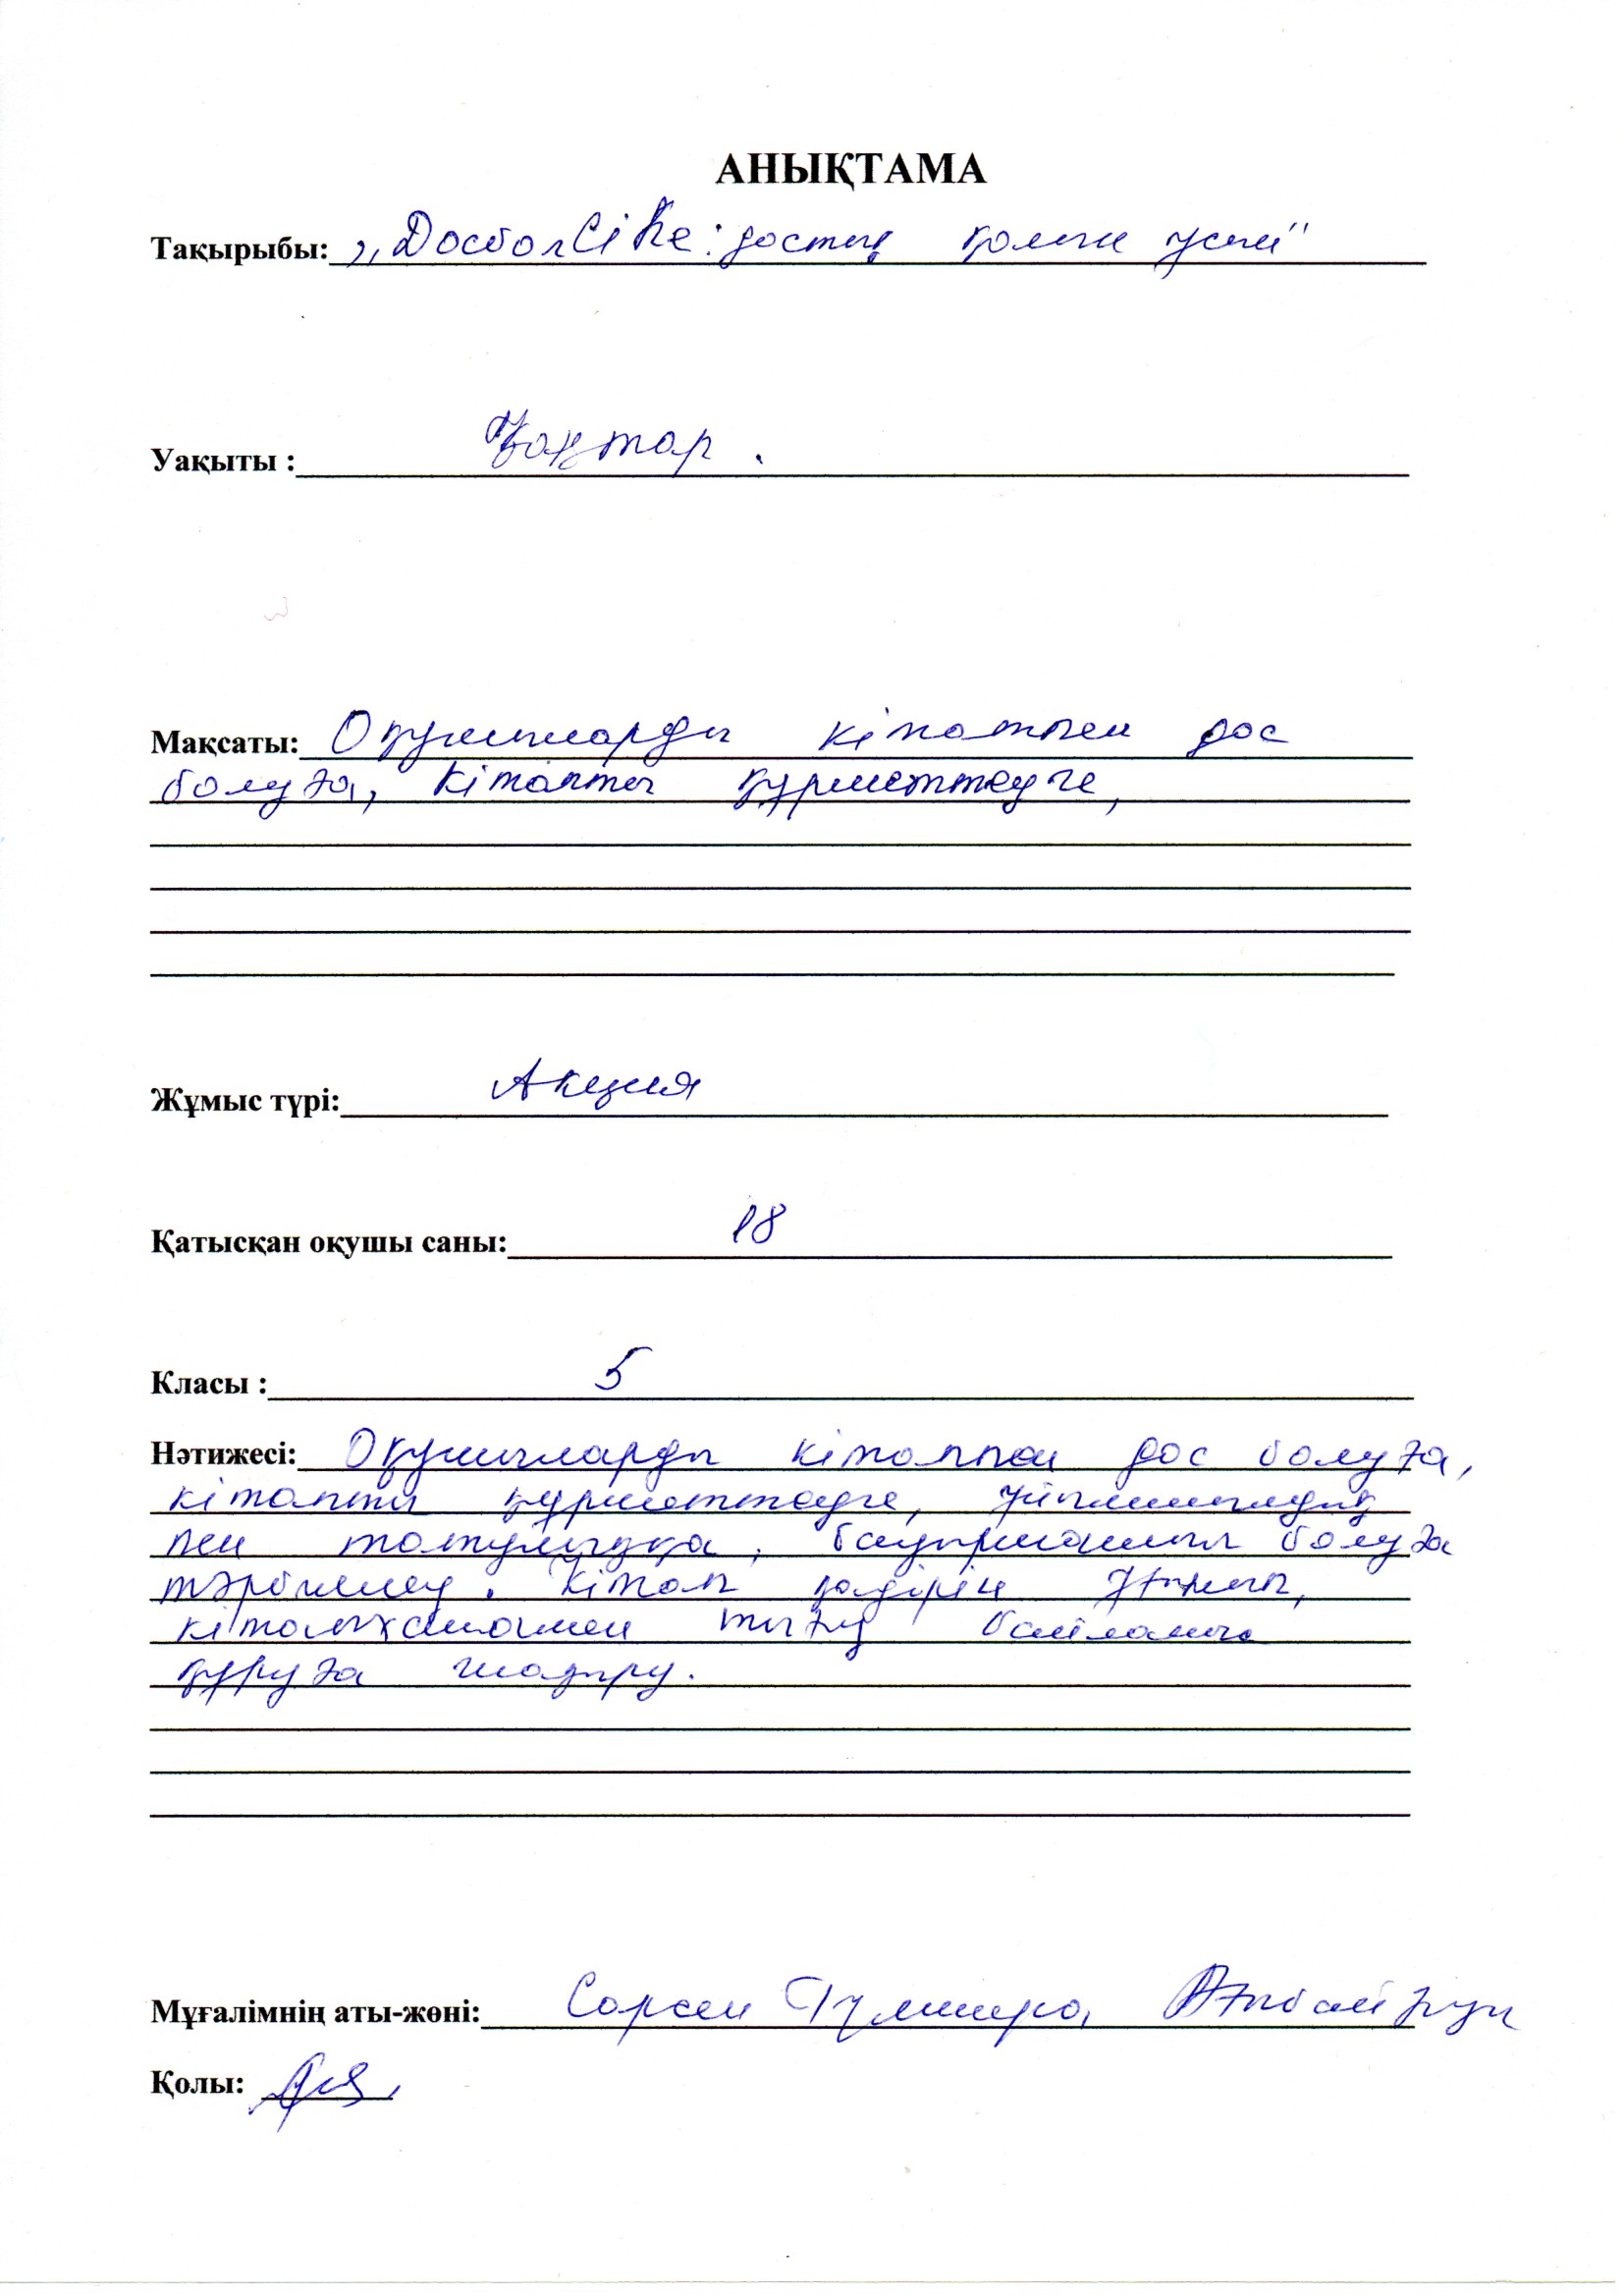 АНЫҚТАМА
Тақырыбы: „ДосболLike: достың қолын ұсын"
Уақыты : Қаңтар .
Мақсаты: Оқушыларды кітаппен дос
болуға, кітапты құрметтеуге,
Жұмыс түрі: Акция
Қатысқан оқушы саны: 18
Класы : 5
Нәтижесі: Оқушыларды кітаппен дос болуға,
кітапты құрметтеуге, ұйымшылдық
пен татулыққа, бауырмашыл болуға
тәрбиелеу. Кітап қадірін ұғынып,
кітапханамен тығыз байланыс
құруға шақыру.
Мұғалімнің аты-жөні: Сарсен Гулмира,
Қолы: